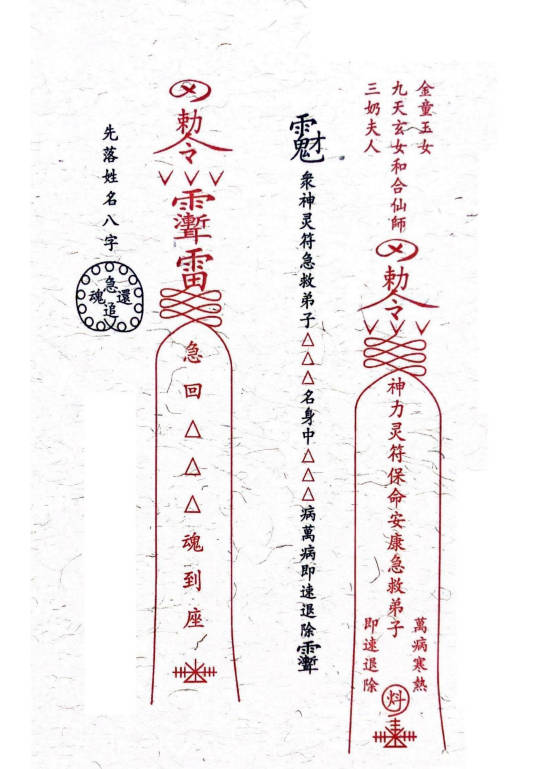 金童玉女
九天玄女和合仙師
三奶夫人
勅令
神力灵符保命安康急救弟子
萬病寒熱
即速退除
衆神灵符急救弟子△△△名身中△△△病萬病即速退除
勅令
雷
急回△△△魂到座
先落姓名八字
急追還魂